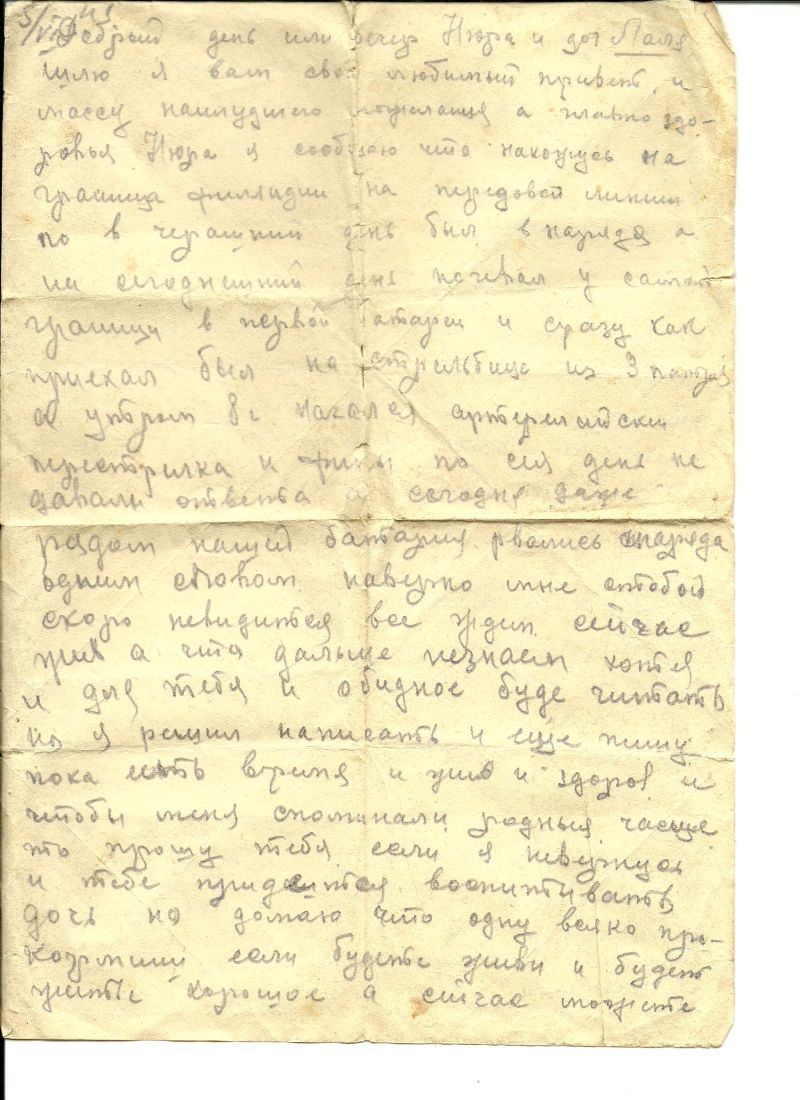 5/VII 41
Добрый день или вечер Нюра и доч Лаля
шлю я вам свой любимый привет и
массу наилудшего пожелания а главно здо-
ровья Нюра я сообщаю что нахожусь на
граница филяндии на передовой линии
по в черашний день был в наряде а
на сегоднешний день ночевал у самой
границы в первой батареи и сразу как
приехал был на стрельбище из 3
а утром 8ч начался артерелийски
перестрелка и фины по сея день не
давали ответа а сегодня даже
рядом нашей батария рвались снаряда
одним словом наверно мне стобой
скоро невидится все ждем сейчас
жив а что дальше незнаем хотя
и для тебя и обидное буде читать
но я решил написать и еще пишу
пока есть время и жив и здоров и
чтобы меня споминали родныя чаще
то прошу тебя если я невернусь
и тебе придеится воспитывать
дочь но домаю что одну всяко про-
кормиш если будете живы и будет
житье хорошое а сейчас можете